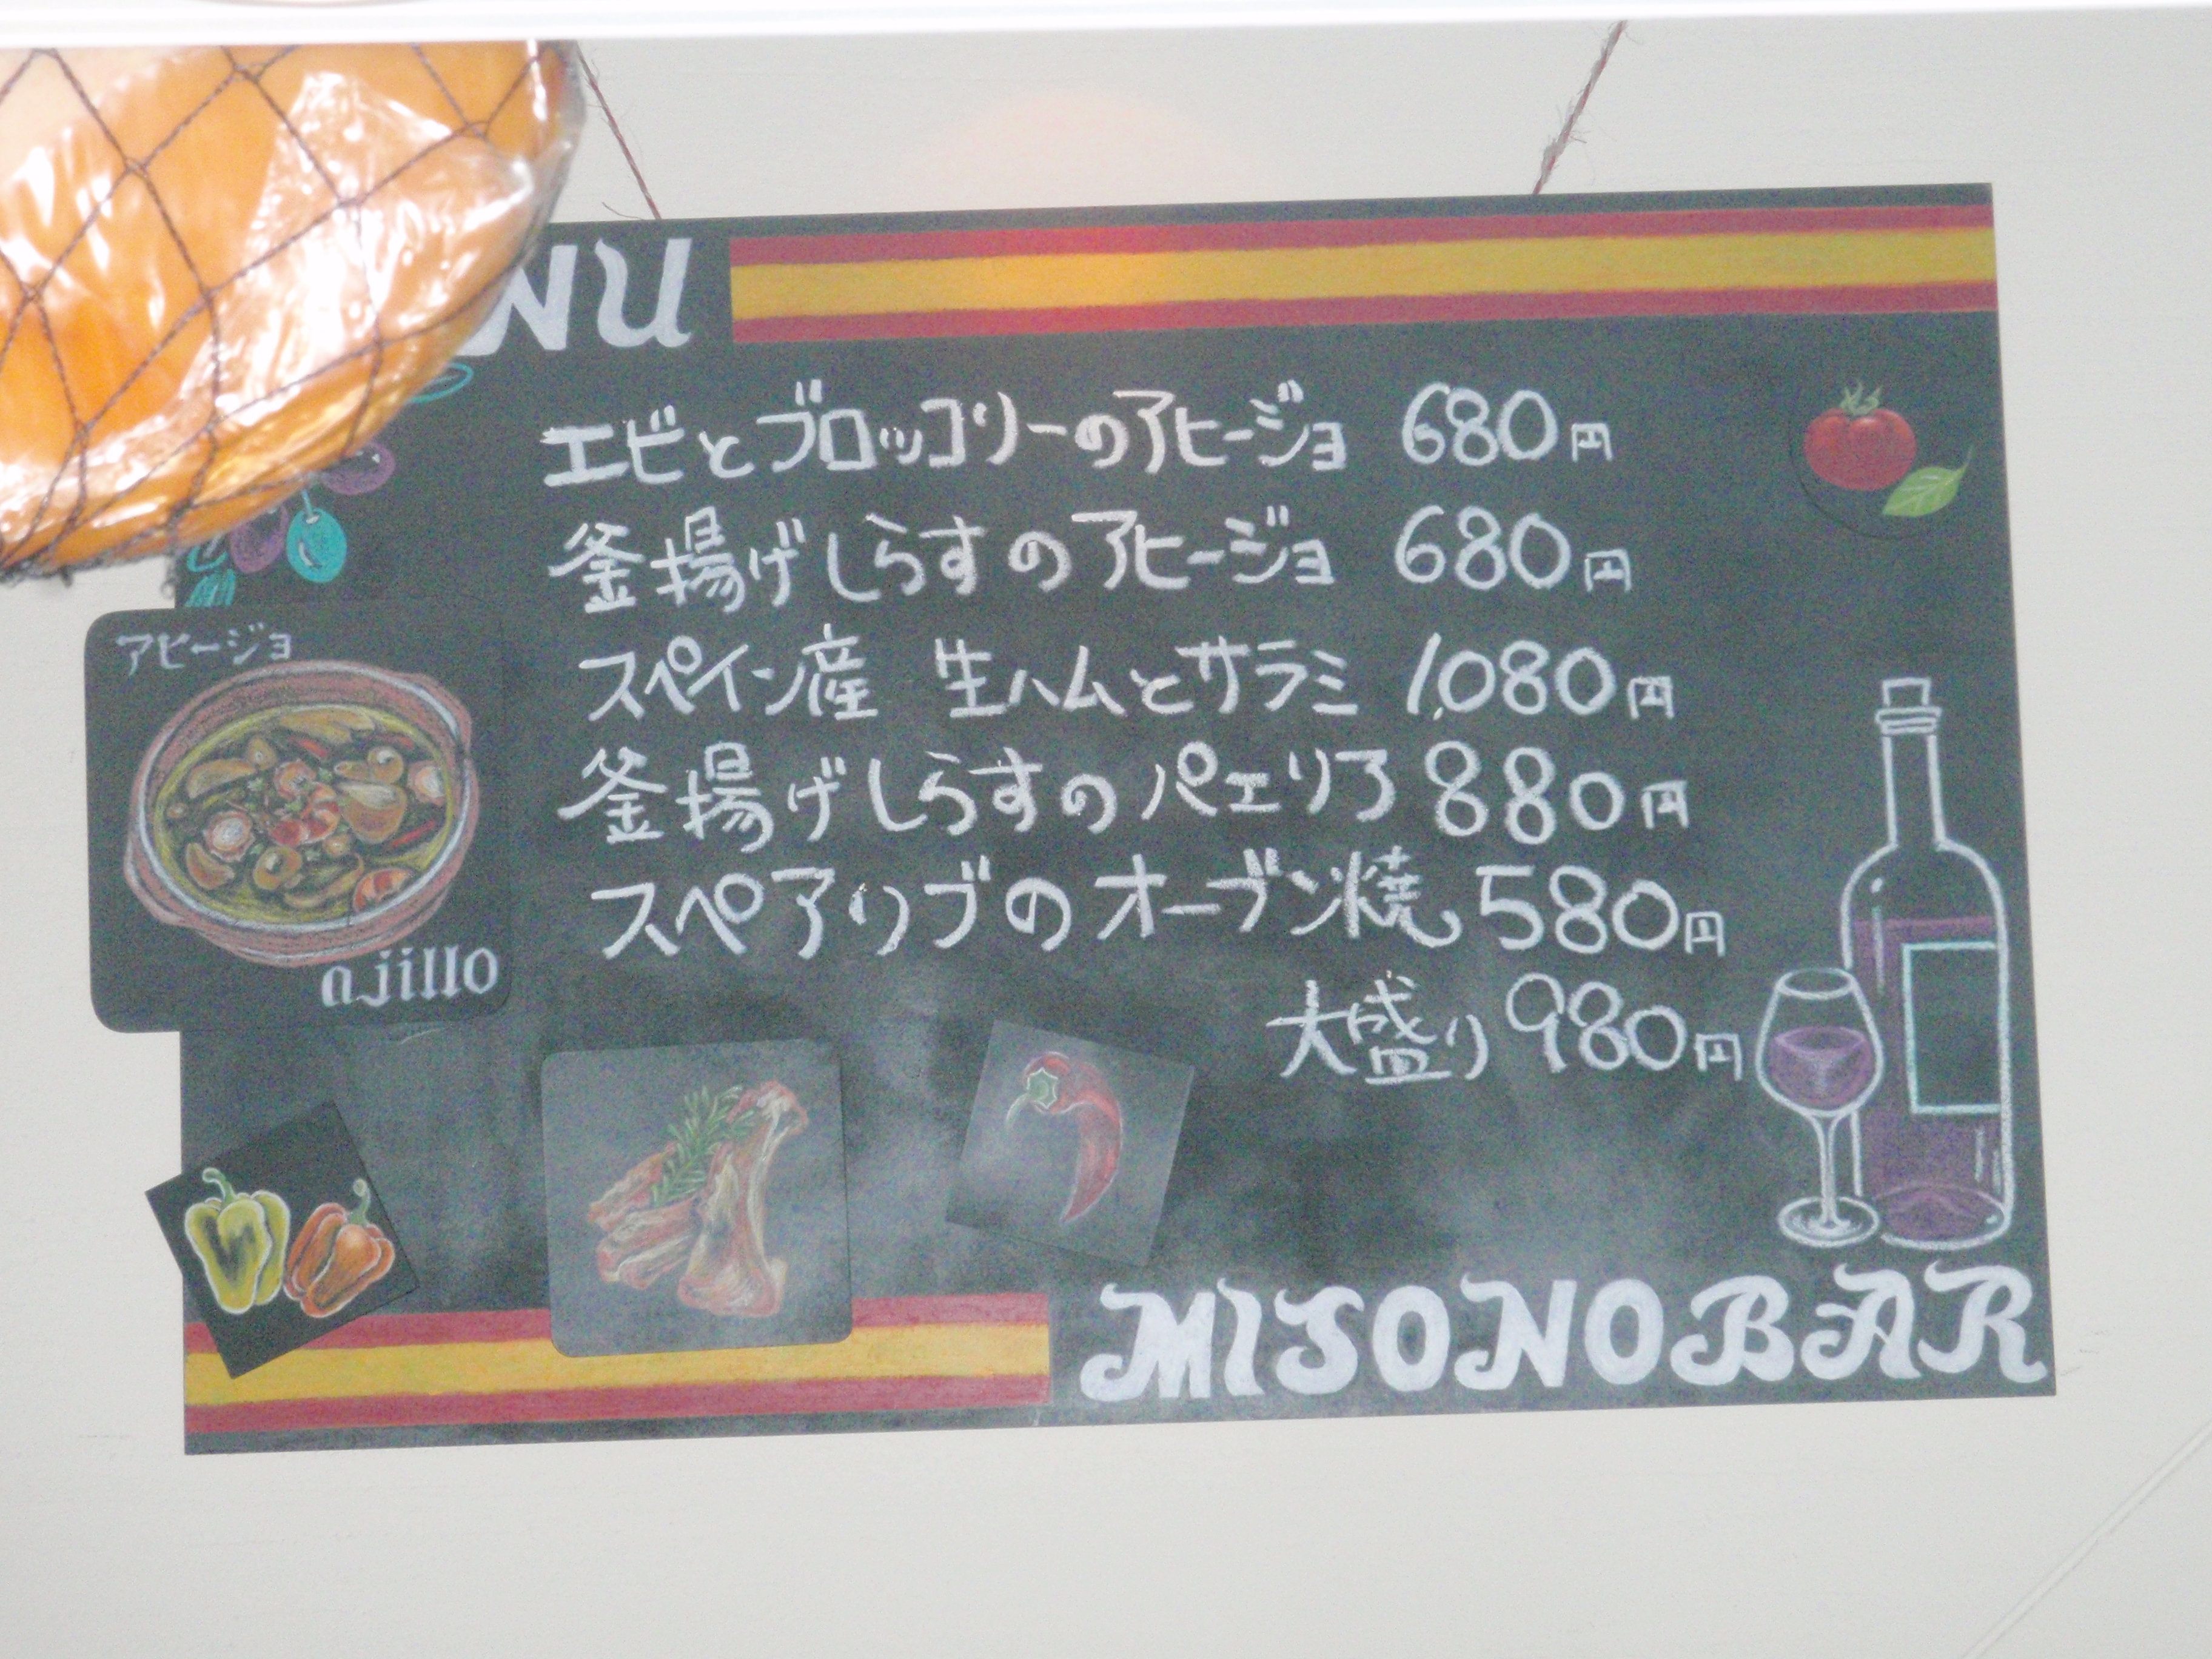 NU
エビとブロッコリーのアヒージョ 680円
釜揚げしらすのアヒージョ 680円
スペイン産 生ハムとサラミ 1,080円
釜揚げしらすのパエリア 880円
スペアリブのオーブン焼 580円
大盛り 980円
アヒージョ
ajillo
MISONOBAR